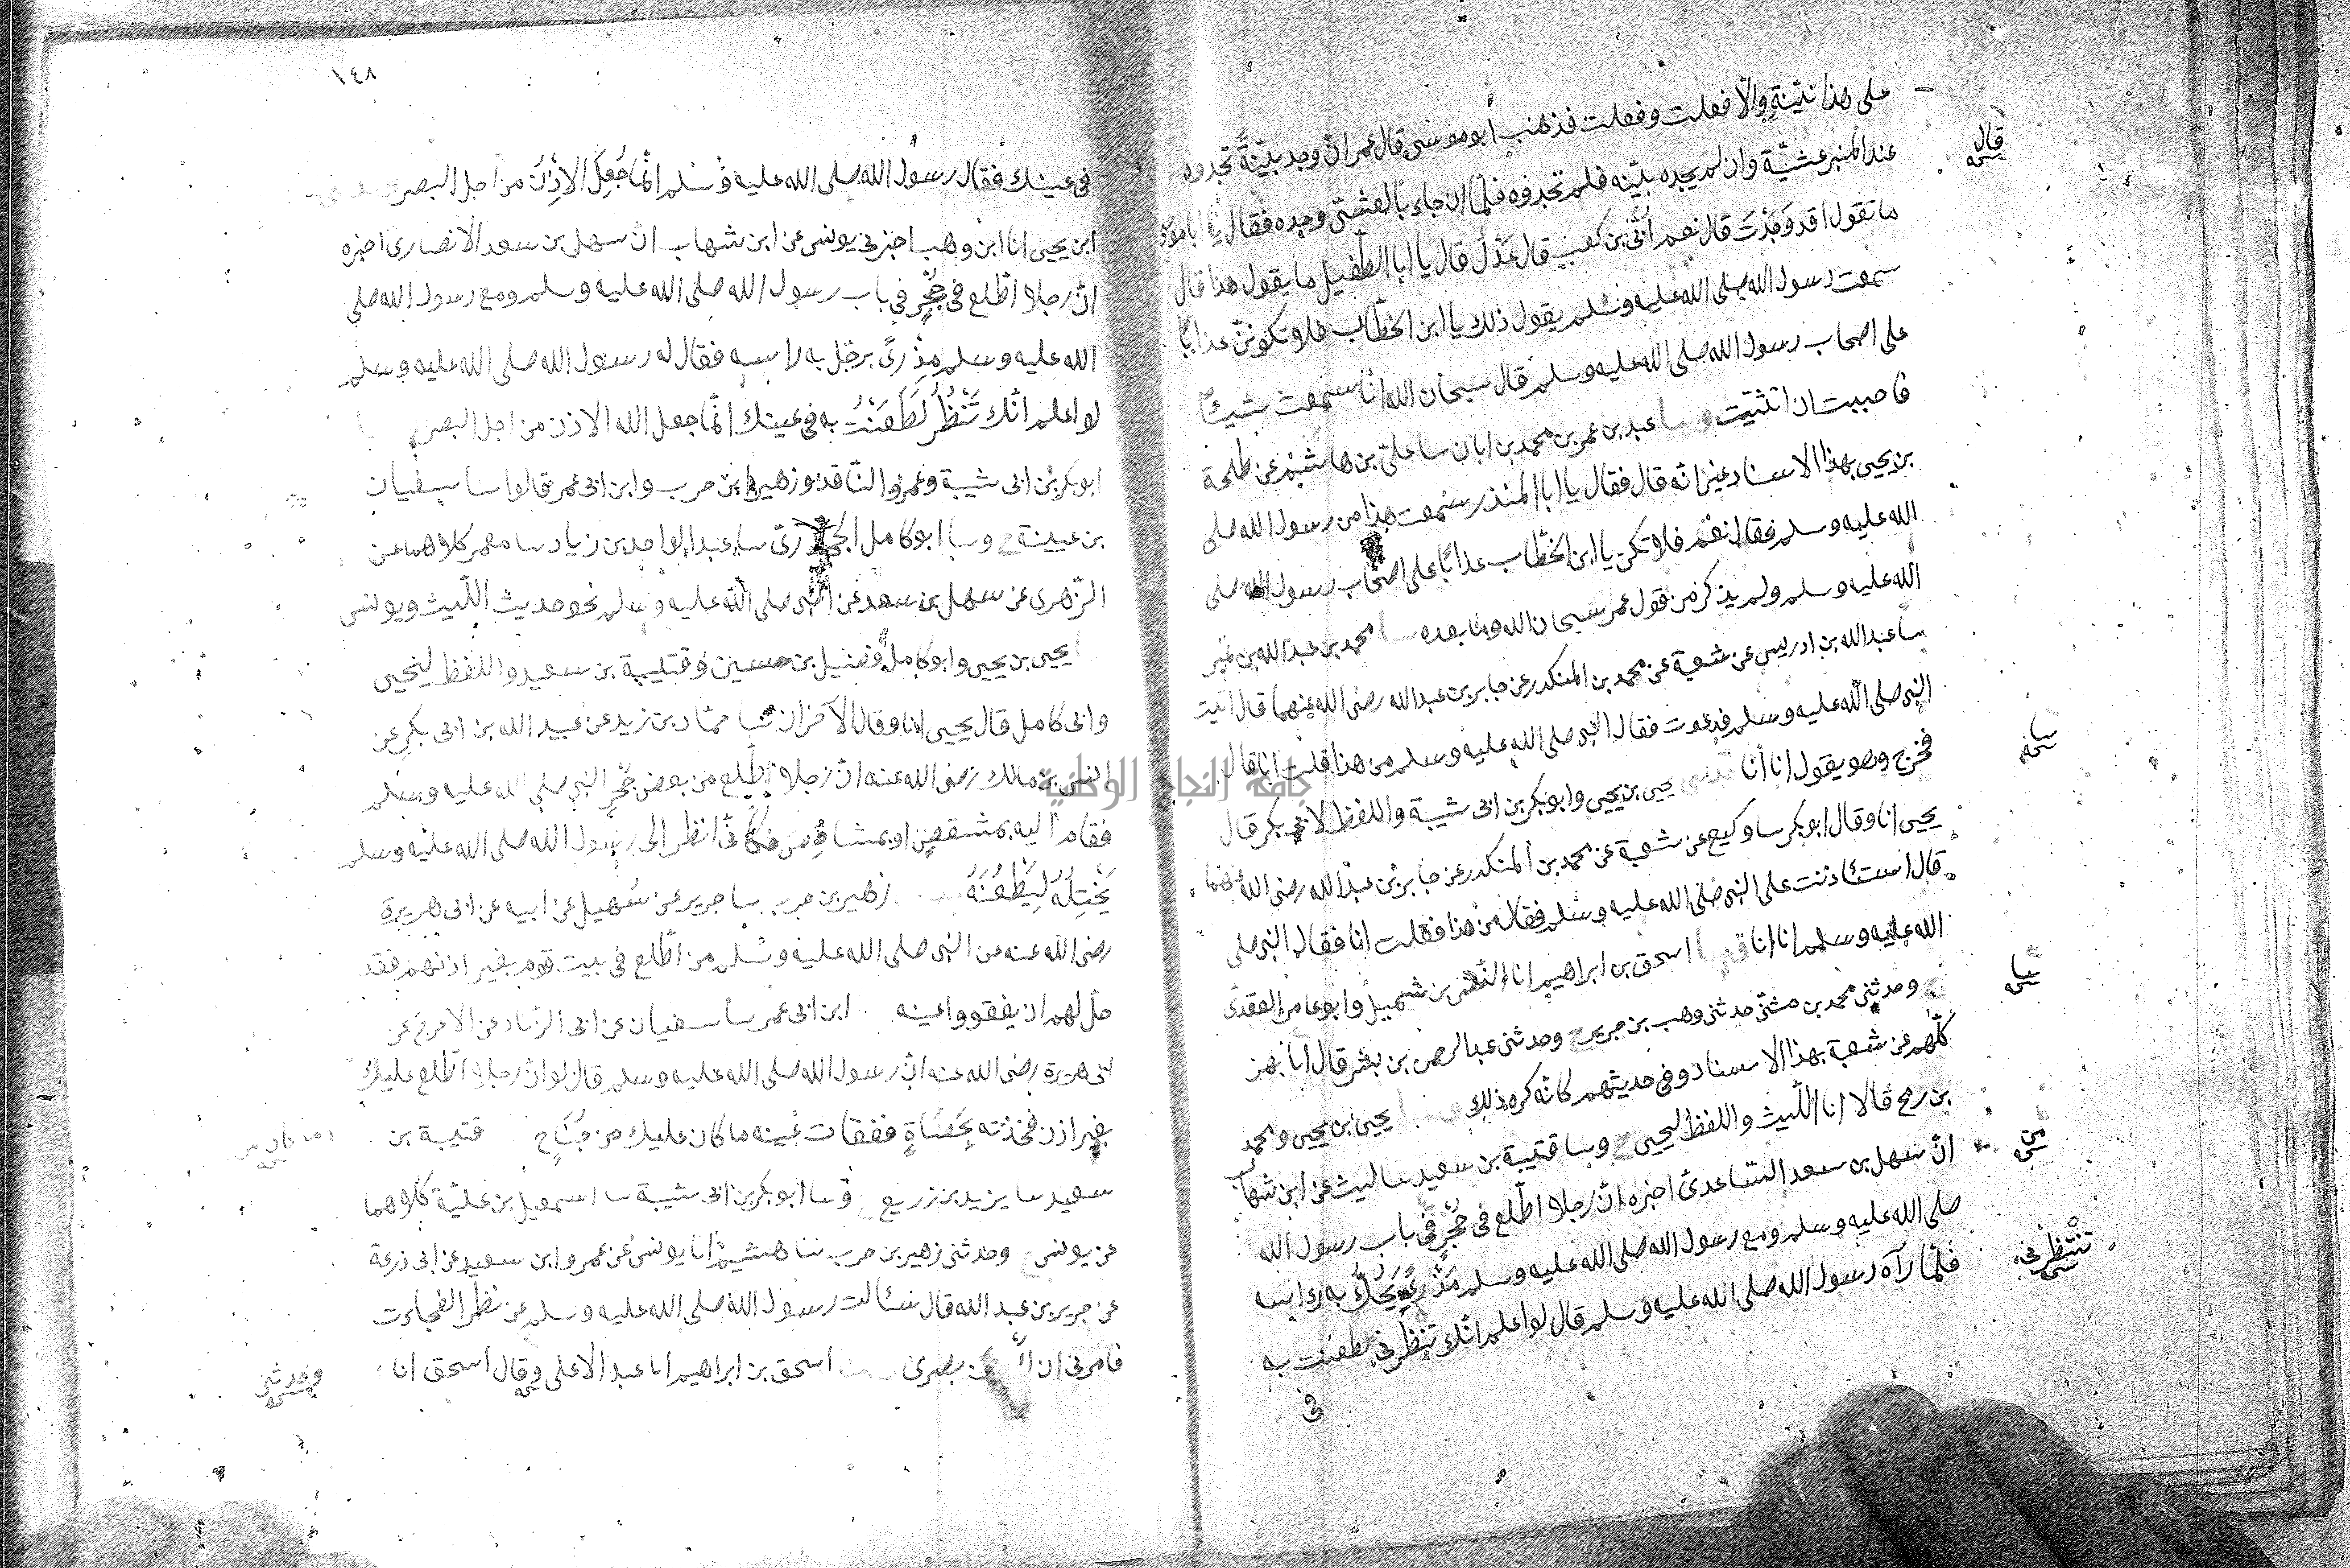 على هذا بيّنةٍ والّا فعلت وفعلت فذهب أبو موسى قال عمر ان وجد بيّنةً تجدوه
قال
عند المنبر عشيّة وان لم يجده بيّنه فلم تجدوه فلمّا ان جاء بالعشىّ وجده فقال يا ابا موسى
ما تقول اقد وَجَدْتَ قال نعم اُبَىّ بن كعب قال عَدْل قال يا ابا الطّفيل ما يقول هذا قال
سمعت رسول الله صلى الله عليه وسلم يقول ذلك يا ابن الخطّاب فلا تكوننّ عذابًا
على اصحاب رسول الله صلى الله عليه وسلم قال سبحان الله انّا سمعت شيئًا
فاحببت ان اتثبّت وسا عبد بن عمر بن محمد بن ابان سا علىّ بن هاشم عن طلحة
بن يحيى بهذا الاسناد غير انّه قال فقال يا ابا المنذر سمعت هذا من رسول الله صلى
الله عليه وسلم فقال نعم فلا تكن يا ابن الخطّاب عذابًا على اصحاب رسول الله صلى
الله عليه وسلم ولم يذكر من قول عمر سبحان الله وما بعده سا محمد بن عبد الله بن نمير
سا عبد الله بن ادريس عن شعبة عن محمد بن المنكدر عن جابر بن عبد الله رضى الله عنهما قال اتيت
النبى صلى الله عليه وسلم فدعوت فقال النبى صلى الله عليه وسلم من هذا قلت انا قال
فخرج وهو يقول انا أنا يحيى بن يحيى وابو بكر بن ابى شيبة واللفظ لابى بكر قال
يحيى انا وقال ابو بكر سا وكيع عن شعبة عن محمد بن المنكدر عن جابر بن عبد الله رضى الله عنهما
قال استئذنت على النبى صلى الله عليه وسلم فقال من هذا فقلت انا فقال النبى صلى
الله عليه وسلم انا انا اسحق بن ابراهيم انا النّضر بن شميل وابو عامر العقدىّ
ح وحدثنى محمد بن مثنّى حدثنى وهب بن جرير ح وحدثنى عبد الرحمن بن بشر قال انا بهز
كلّهم عن شعبة بهذا الاسناد وفى حديثهم كانّه كره ذلك يحيى بن يحيى ومحمد
بن رمح قالا انا اللّيث واللفظ ليحيى ح وسا قتيبة بن سعيد سا ليث عن ابن شهاب
انّ سهل بن سعد السّاعدىّ اخبره انّ رجلا اطّلع فى جُحْرٍ فى باب رسول الله
صلى الله عليه وسلم ومع رسول الله صلى الله عليه وسلم مِدْرًى يَحُكُّ به راسه
تنتظرنى
فلمّا رآه رسول الله صلى الله عليه وسلم قال لو اعلم انّك تنظرنى لطعنت به
فى
١٤٨
فى عينك فقال رسول الله صلى الله عليه وسلم انّما جُعِلَ الاِذْنُ من اجل البصر
ابن يحيى انا ابن وهب اخبرنى يونس عن ابن شهاب انّ سهل بن سعد الانصارى اخبره
انّ رجلا اطّلع فى جُحْرٍ فى باب رسول الله صلى الله عليه وسلم ومع رسول الله صلى
الله عليه وسلم مِدْرًى يرجّل به راسه فقال له رسول الله صلى الله عليه وسلم
لو اعلم انّك تَنْظُرُ لَطَعَنْتُ به فى عينك انّما جعل الله الاذن من اجل البصر
ابو بكر بن ابى شيبة وعمرو النّاقد وزهير بن حرب وابن ابى عمر قالوا سا سفيان
بن عيينة ح وسا ابو كامل الجحدرىّ سا عبد الواحد بن زياد سا معمر كلاهما عن
الزّهرى عن سهل بن سعد عن النبى صلى الله عليه وسلم نحو حديث اللّيث ويونس
يحيى بن يحيى وابو كامل فضيل بن حسين وقتيبة بن سعيد واللفظ ليحيى
وابى كامل قال يحيى انا وقال الآخران ثنا حمّاد بن زيد عن عبيد الله بن ابى بكر عن
انس بن مالك رضى الله عنه انّ رجلا اطّلع من بعض حُجَر النبى صلى الله عليه وسلم
فقام اليه بمشقصٍ او بمشاقِصَ فكانّى انظر الى رسول الله صلى الله عليه وسلم
يَخْتِلُهُ لِيَطْعُنَهُ زهير بن حرب سا جرير عن سُهيل عن ابيه عن ابى هريرة
رضى الله عنه عن النبى صلى الله عليه وسلم من اطّلع فى بيت قوم بغير اذنهم فقد
حلّ لهم ان يفقووا عينه ابن ابى عمر سا سفيان عن ابى الزّناد عن الاعرج عن
ابى هريرة رضى الله عنه انّ رسول الله صلى الله عليه وسلم قال لو انّ رجلا اطّلع عليك
بغير اذن فخذفته بِحَصَاةٍ ففقات عينه ما كان عليك من جُنَاحٍ قتيبة بن
سعيد سا يزيد بن زريع وسا ابو بكر بن ابى شيبة سا اسمعيل بن عليّة كلاهما
عن يونس ح وحدثنى زهير بن حرب ثنا هشيم انا يونس عن عمرو ابن سعيد عن ابى زرعة
عن جرير بن عبد الله قال سئالت رسول الله صلى الله عليه وسلم عن نظر الفجاءت
فامرنى ان بصرى اسحق بن ابراهيم انا عبد الاعلى وقال اسحق انا
وحدثنى
جامعة النجاح الوطنية